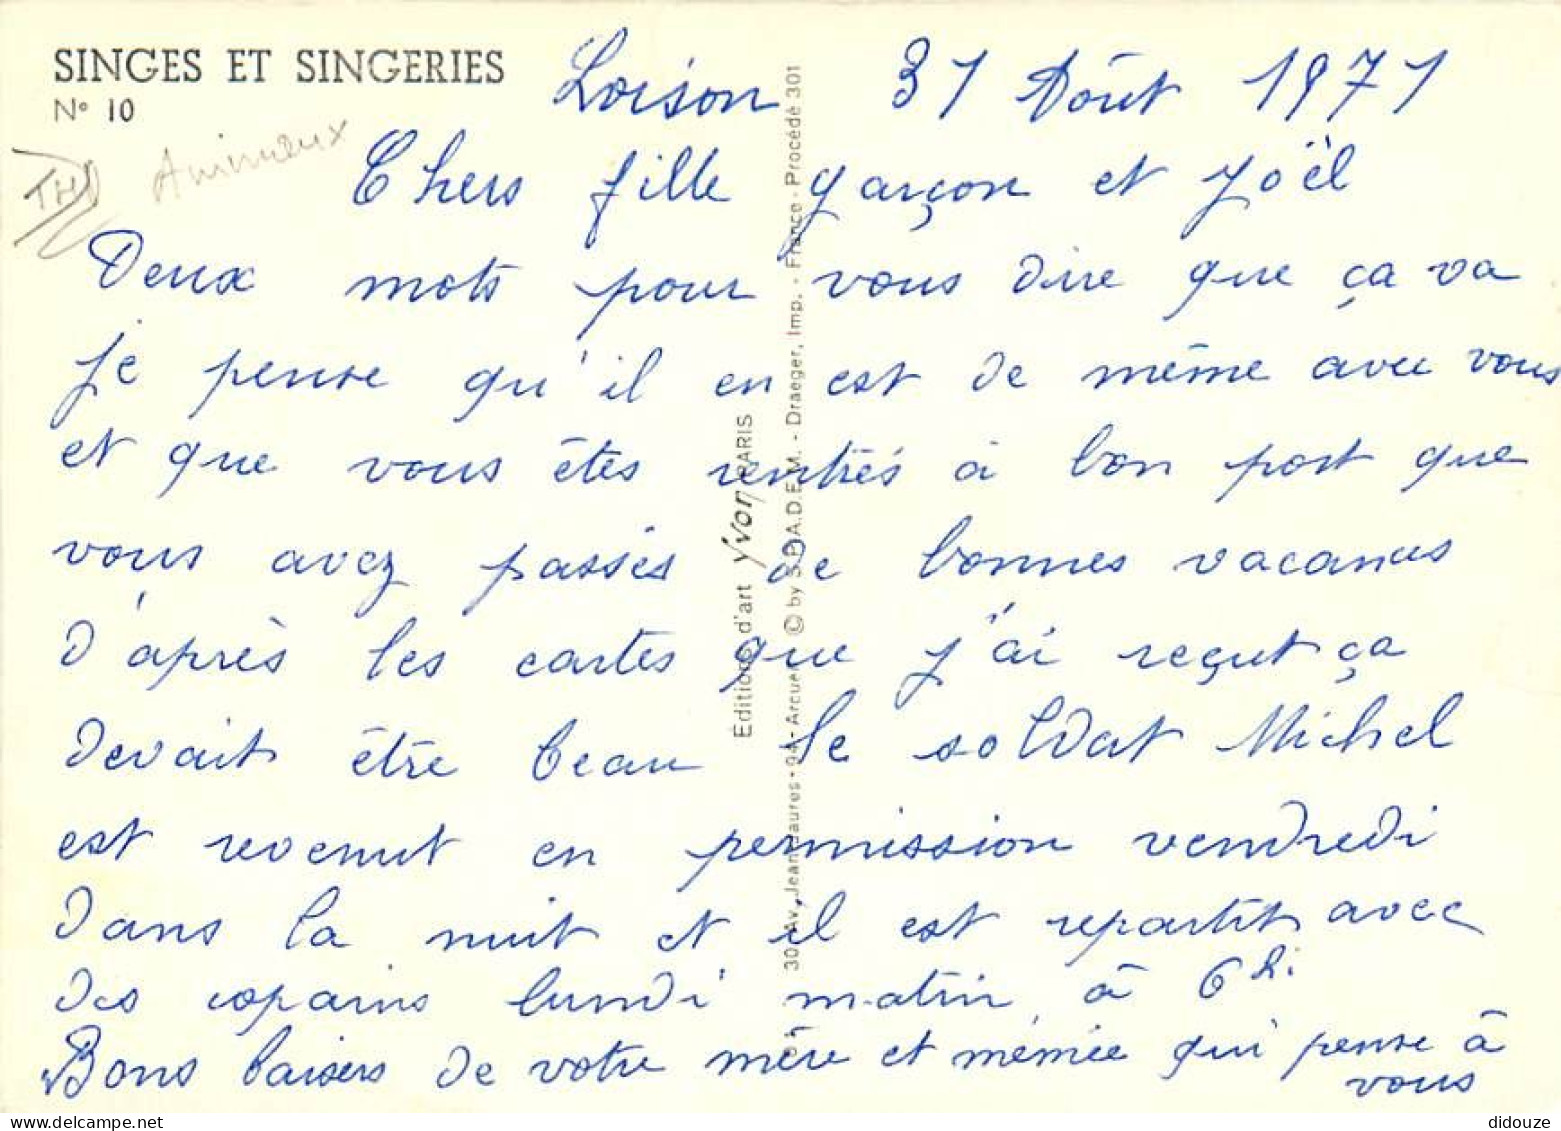 SINGES ET SINGERIES
N° 10
Animaux
Loison 31 Aôut 1971
Chers fille garçon et Joël
Deux mots pour vous dire que ça va
je pense qu'il en est de même avec vous
et que vous êtes rentrés à bon port que
vous avez passés de bonnes vacances
d'après les cartes que j'ai reçut ça
devait être beau le soldat Michel
est revenut en permission vendredi
dans la nuit et il est repartit avec
des copains lundi matin à 6h.
Bons baisers de votre mère et mémée qui pense à
vous
Editions d'art Yvon PARIS
30, Av. Jean Jaurès - 94 - Arcueil © by S.P.A.D.E.M. - Draeger, Imp. - France - Procédé 301
delcampe.net
didouze